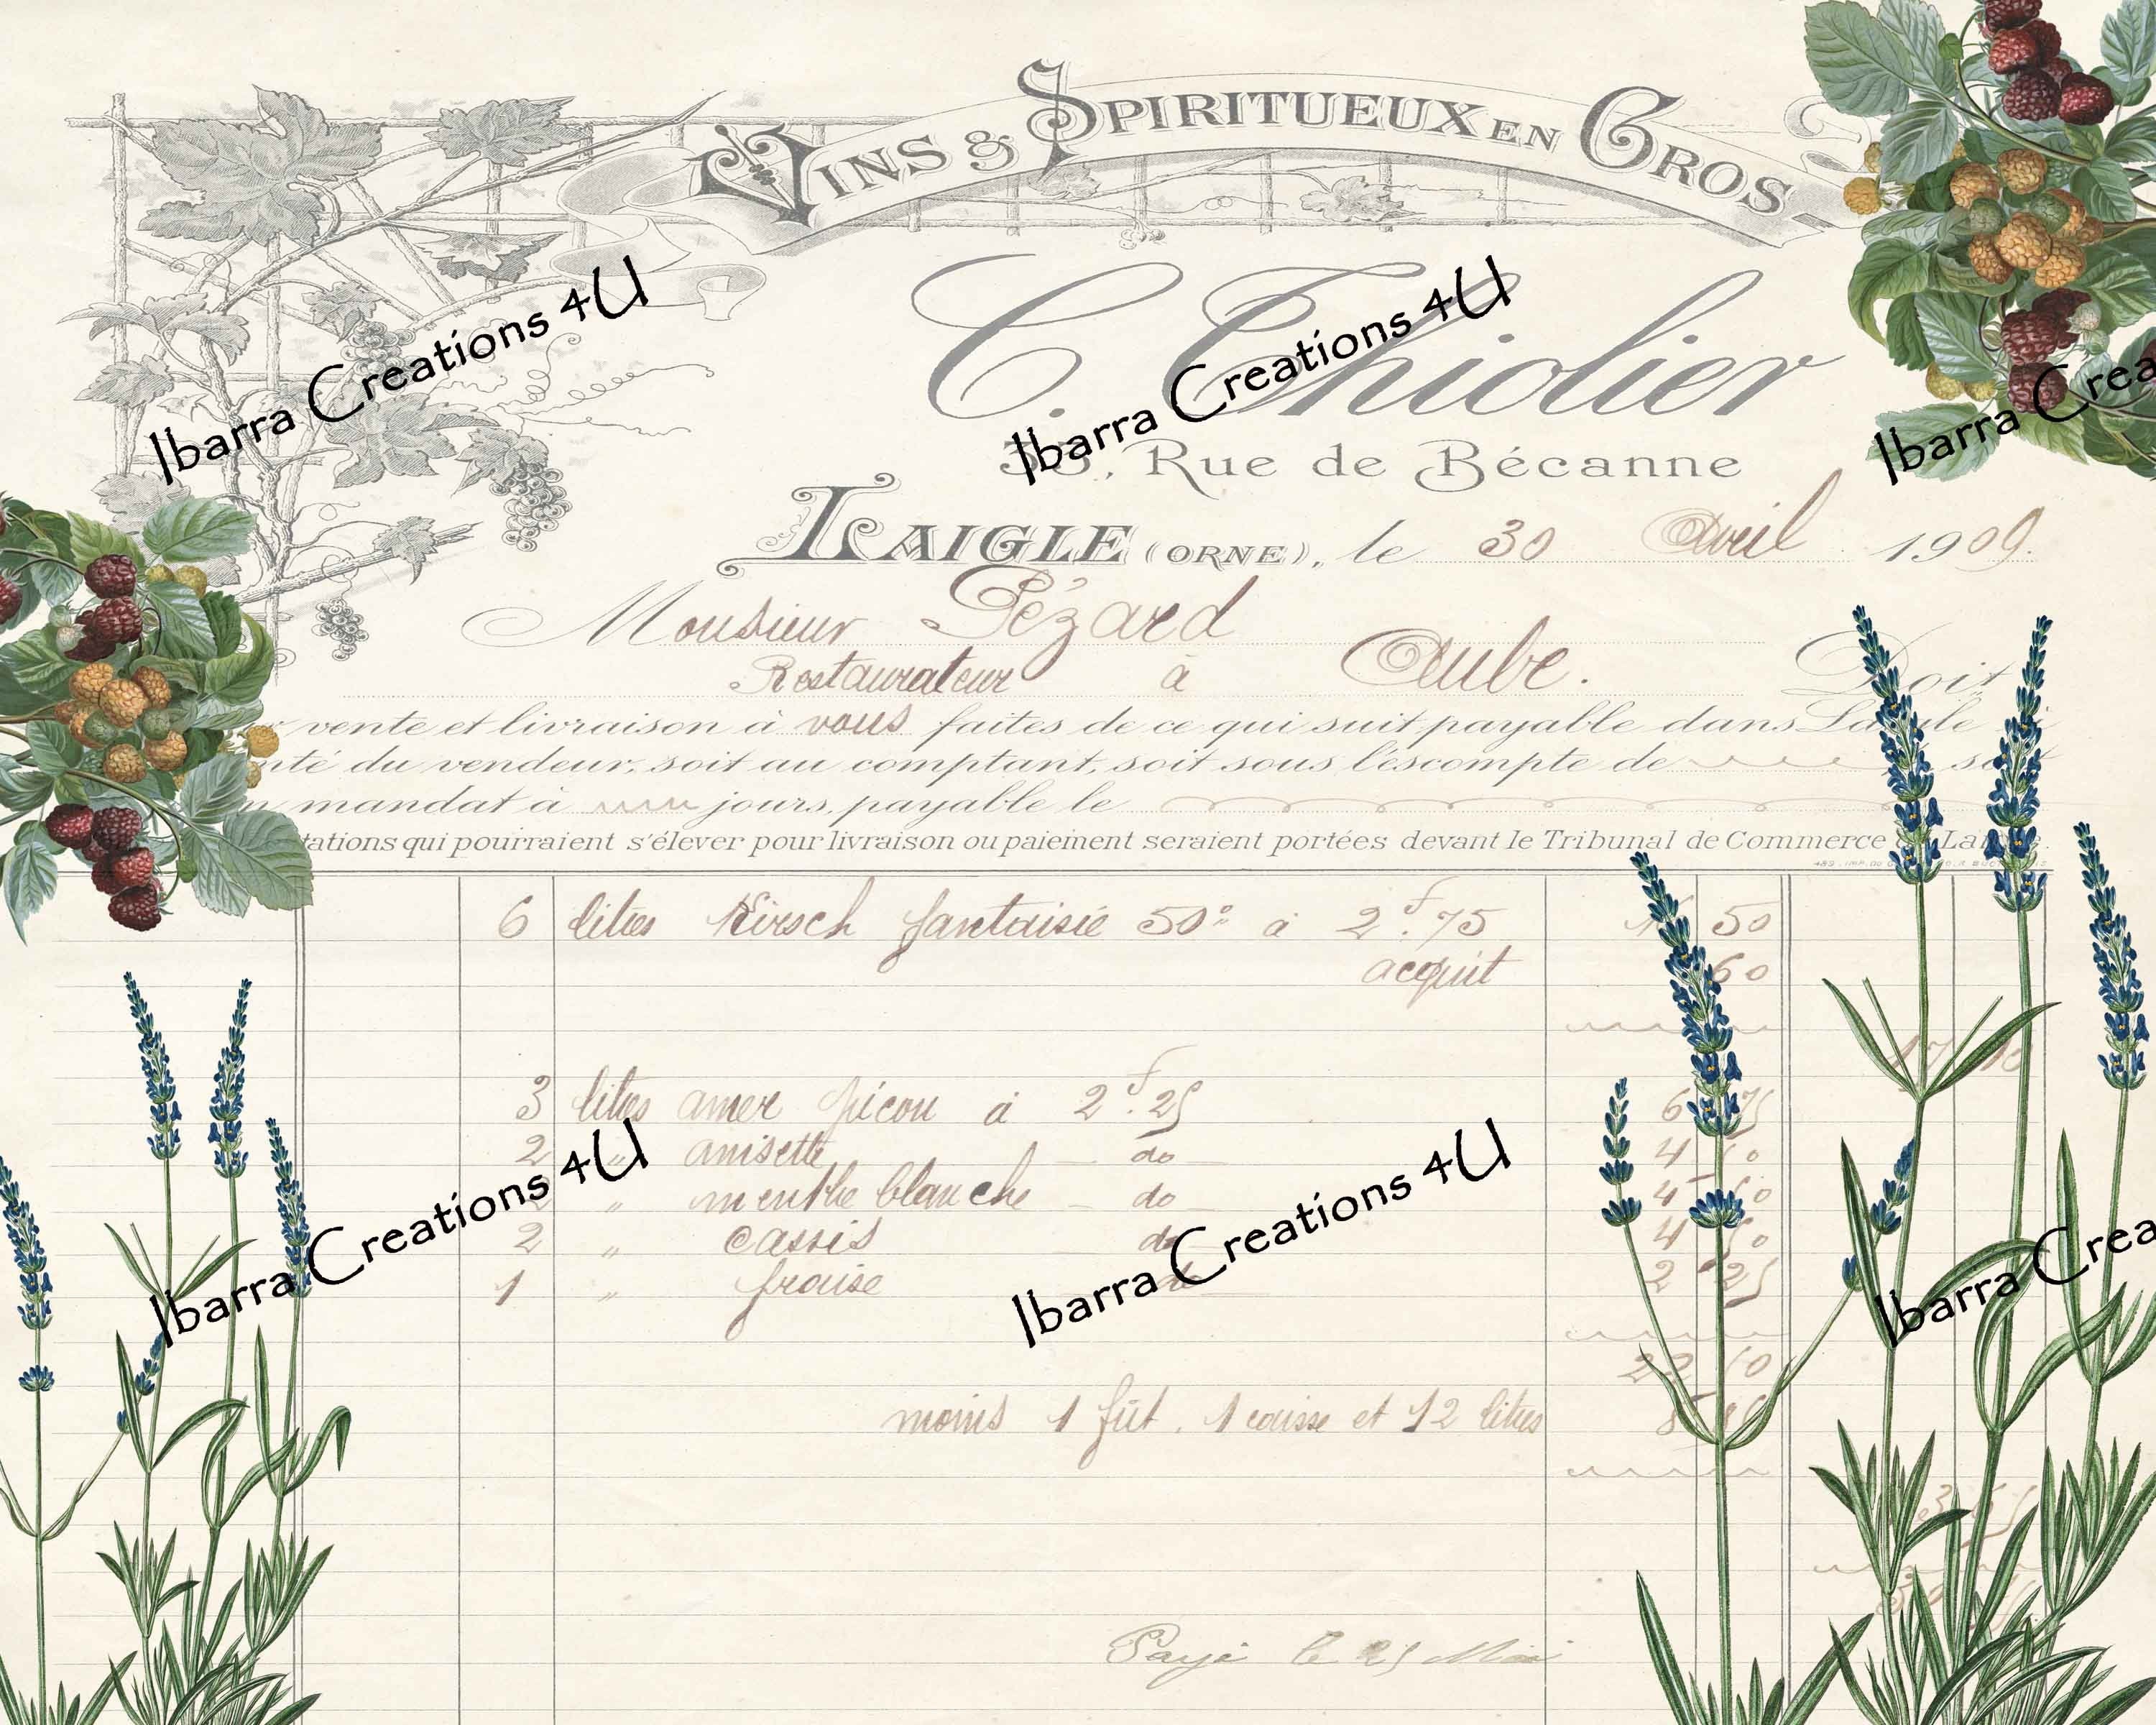 VINS & SPIRITUEUX EN GROS
C. Thiolier
35, Rue de Bécanne
LAIGLE (ORNE), le 30 Avril 1909.
Monsieur Pézard
Restaurateur à Aube. Doit
vente et livraison à vous faites de ce qui suit payable dans Laigle
du vendeur, soit au comptant, soit sous l'escompte de
mandat à jours, payable le
qui pourraient s'élever pour livraison ou paiement seraient portées devant le Tribunal de Commerce
6 litres Kirsch fantaisie 50° à 2f.75 50
acquit 60
3 litres amer picou à 2f.25 6 75
2 " anisette do 4
" menthe blanche do 4
2 " cassis do 4 50
1 " fraise do 2 25
22
moins 1 fût. 1 caisse et 12 litres
Payé le 25 Mai
Ibarra Creations 4U
Ibarra Creations 4U
Ibarra Crea
Ibarra Creations 4U
Ibarra Creations 4U
Ibarra Crea